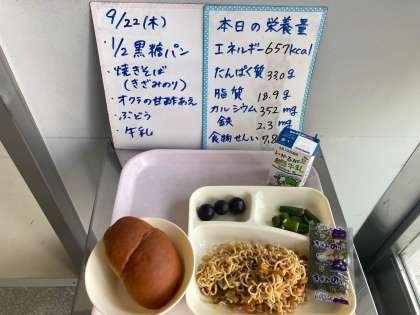 9/22(木)
・1/2黒糖パン
・焼きそば
(きざみのり)
・オクラの甘酢あえ
・ぶどう
・牛乳
本日の栄養量
エネルギー657kcal
たんぱく質 33.0g
脂質 18.9g
カルシウム 352mg
鉄 2.3mg
食物せんい 7.8
牛乳
きざみのり